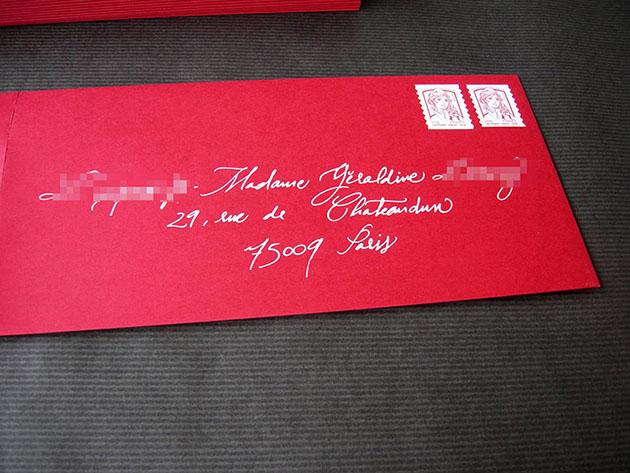 Madame Géraldine
29, rue de Chateaudun
75009 Paris